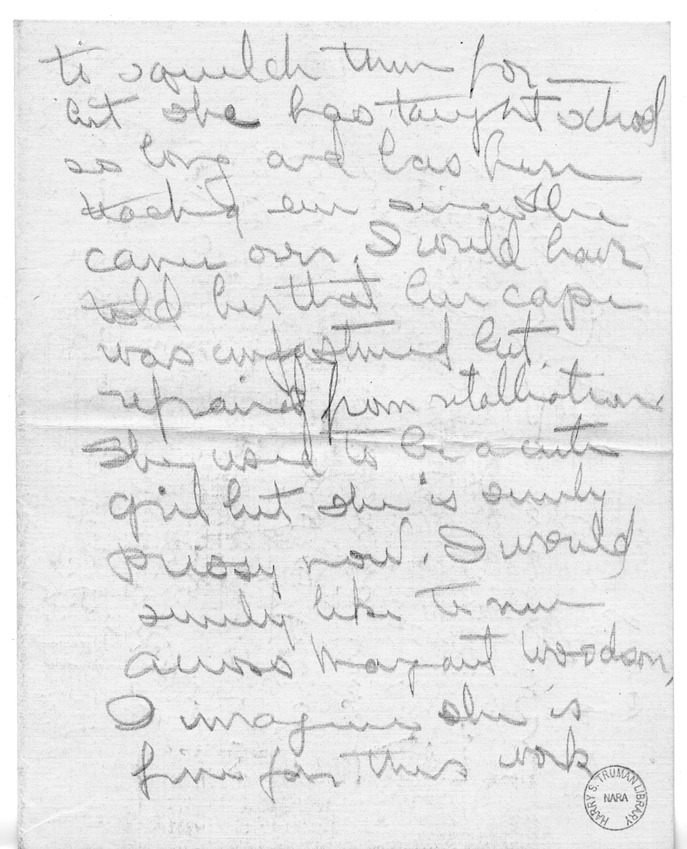 to squelch them for —
but she has taught school
so long and has been
teaching ever since she
came over. I would have
told her that her cape
was unfastened but
refrained from retalliation
She used to be a cute
girl but she is surely
prissy now. I would
surely like to run
across Margaret Woodson,
I imagine she is
fine for this work
HARRY S. TRUMAN LIBRARY
NARA